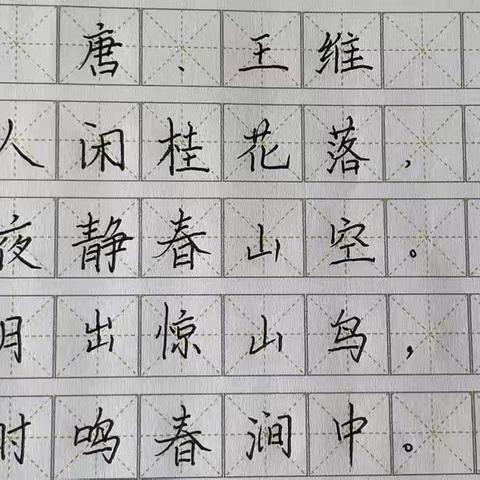 唐、王维
人闲桂花落，
夜静春山空。
月出惊山鸟，
时鸣春涧中。